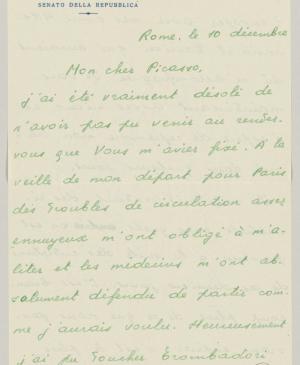 SENATO DELLA REPUBBLICA
Rome, le 10 décembre
Mon cher Picasso,
j'ai été vraiment désolé de
n'avoir pas pu venir au rendez-
vous que Vous m'avier fixé. A la
veille de mon départ pour Paris
des troubles de circulation asser
ennuyeux m'ont obligé à m'a-
liter et les médecins m'ont ab-
solument défendu de partir com-
me j'aurais voulu. Heureusement
j'ai pu toucher Trombadori